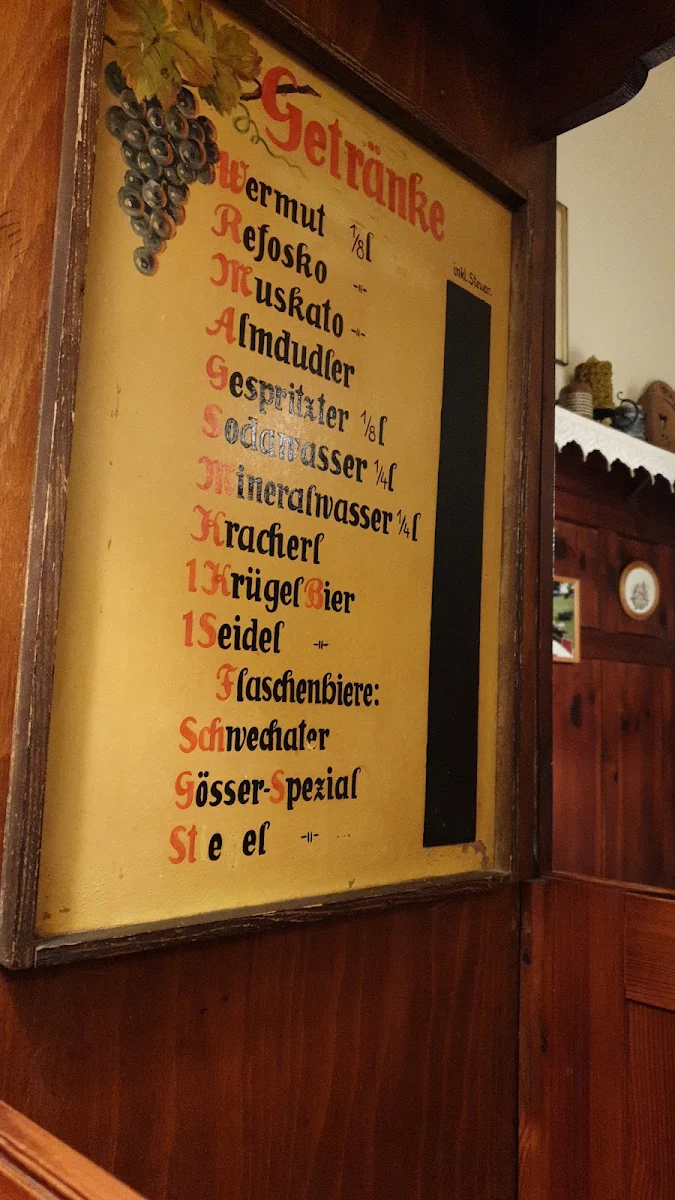 Getränke
inkl. Steuer
Wermut 1/8 l
Refosko -"-
Muskato -"-
Almdudler
Gespritzter 1/8 l
Sodawasser 1/4 l
Mineralwasser 1/4 l
Kracherl
1 Krügel Bier
1 Seidel -"-
Flaschenbiere:
Schwechater
Gösser-Spezial
St e el -"-